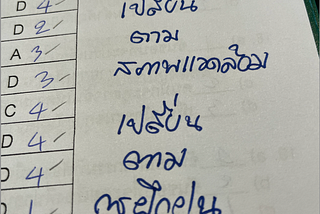 D 4 เปลี่ยน
D 2 ตาม
A 3 สภาพแวดล้อม
D 3
C 4 เปลี่ยน
D 4 ตาม
D 4 การฝึกฝน
D 1